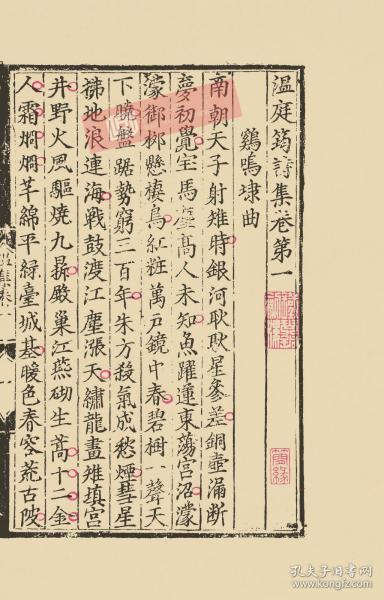 温庭筠詩集卷第一
鷄鳴埭曲
南朝天子射雉時銀河耿耿星參差銅壺漏斷
夢初覺宝馬塵高人未知魚躍蓮東蕩宮沼濛
濛御栁懸棲鳥紅粧萬戶鏡中春碧樹一聲天
下曉盤踞勢窮三百年朱方殺氣成愁煙彗星
拂地浪連海戰鼓渡江塵漲天繡龍畫雉填宮
井野火風驅燒九鼎殿巢江燕砌生蒿十二金
人霜烱烱芊綿平綠臺城基暖色春容荒古陂
孔夫子旧书网